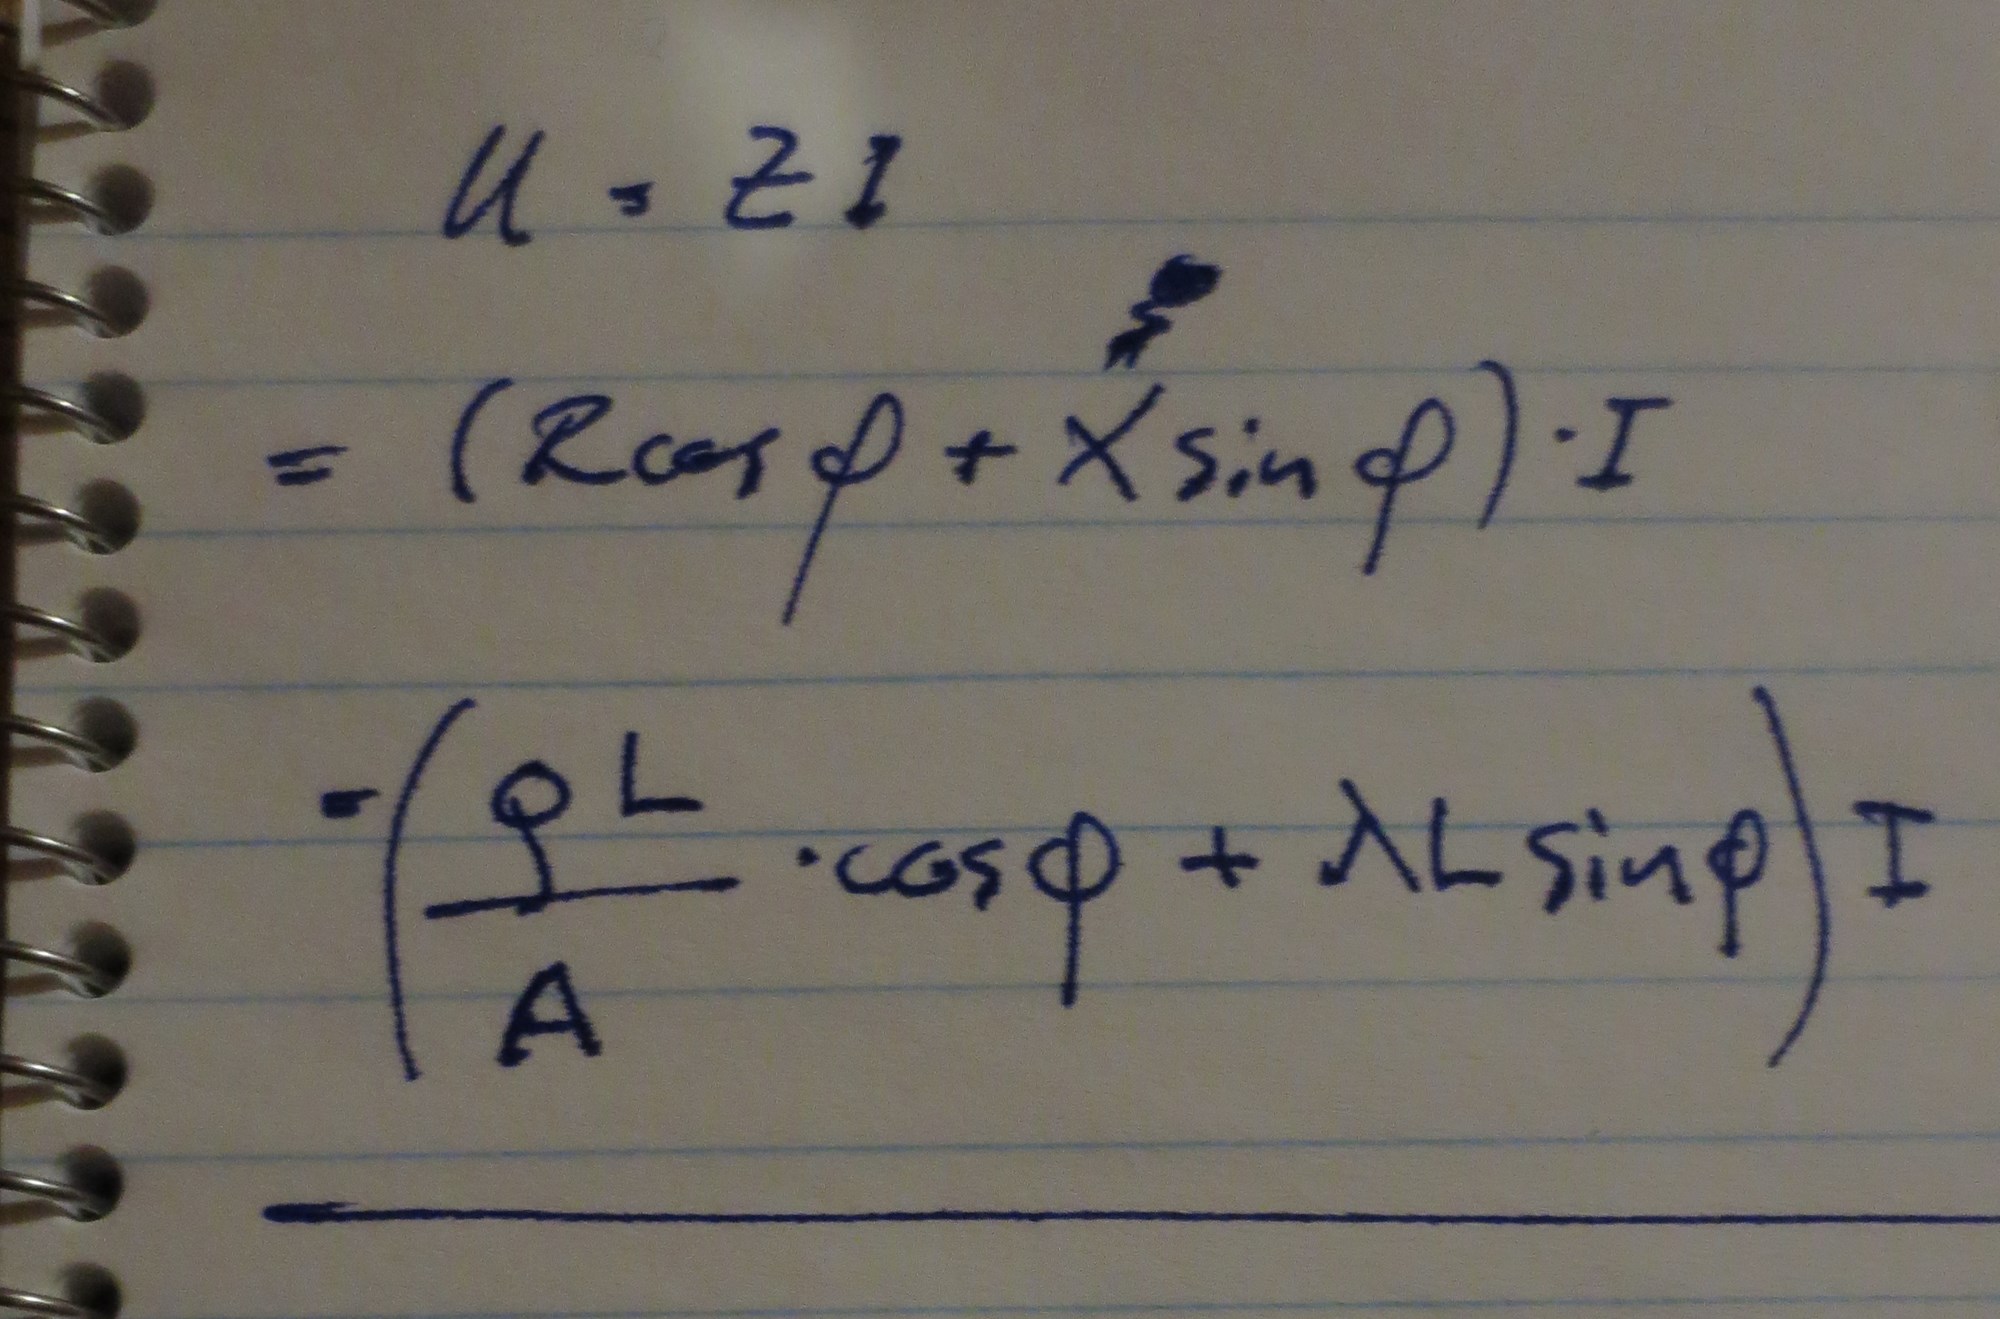 U = Z I
= (R cos φ + X sin φ) · I
= (ρ L / A · cos φ + λ L sin φ) I